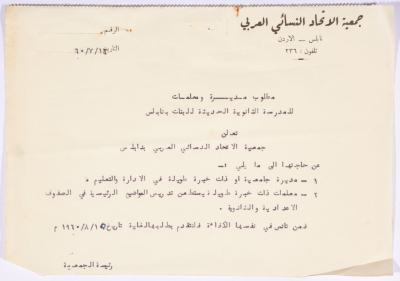 جمعية الاتحاد النسائي العربي
نابلس - الاردن
تلفون : ٢٣٦
الرقم
التاريخ ٦٠/٧/١٤
مطلوب مديرة ومعلمات
للمدرسة الثانوية الحديثة للبنات بنابلس
تعلن
جمعية الاتحاد النسائي العربي بنابلس
عن حاجتها الى ما يلي :-
١ - مديرة جامعية او ذات خبرة طويلة في الادارة والتعليم .
٢ - معلمات ذات خبرة طويلة يستطعن تدريس المواضيع الرئيسية في الصفوف
الاعدادية والثانوية .
فمن تأنس في نفسها الكفاءة فلتتقدم بطلبها لغاية تاريخ ١٩٦٠/٨/١٥ م
رئيسة الجمعية